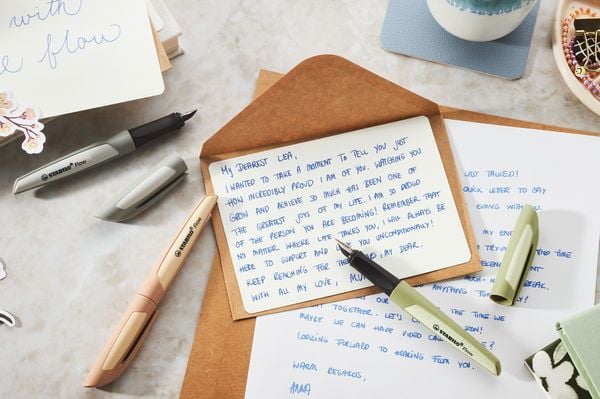 with
flow
STABILO flow
STABILO
STABILO flow
My DEAREST LEA,
I WANTED TO TAKE A MOMENT TO TELL YOU JUST
HOW INCREDIBLY PROUD I AM OF YOU. WATCHING YOU
GROW AND ACHIEVE SO MUCH HAS BEEN ONE OF
THE GREATEST JOYS OF MY LIFE. I AM SO PROUD
OF THE PERSON YOU ARE BECOMING! REMEMBER THAT
NO MATTER WHERE LIFE TAKES YOU, I WILL ALWAYS BE
HERE TO SUPPORT AND YOU UNCONDITIONALLY!
KEEP REACHING FOR THE , MY DEAR.
WITH ALL MY LOVE,
LAST TALKED!
QUICK LETTER TO SAY
GOING WITH YOU.
MY END!
TRYING AND TIME
MUCH- BREAK.
ANYTHING FUN
TOGETHER. LET'S THE TIME WE
MAYBE WE CAN HAVE VIDEO CALL SOON!
LOOKING FORWARD TO HEARING FROM YOU.
WARM REGARDS,
ANNA
STABILO flow
STABILO flow